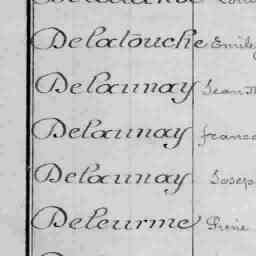 Delatouche Emile
Delaunay Jean
Delaunay franc
Delaunay Josep
Deleurme